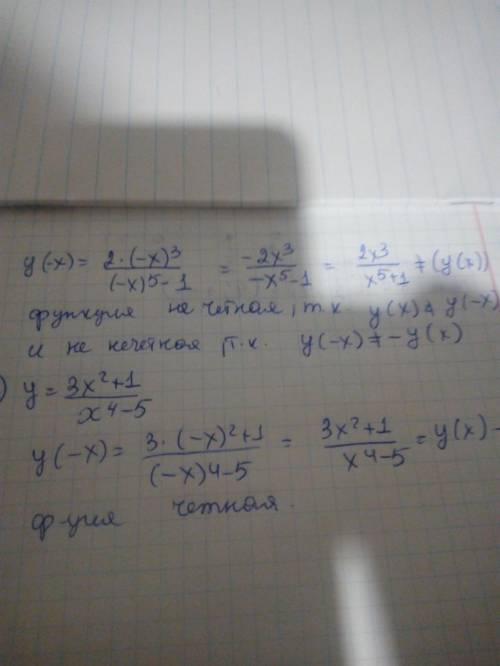 y(-x) = 2·(-x)³/(-x)⁵-1 = -2x³/-x⁵-1 = 2x³/x⁵+1 ≠ (y(x))
функция не чётная, т.к. y(x) ≠ y(-x)
и не нечётная т.к. y(-x) ≠ -y(x)
) y = 3x²+1/x⁴-5
y(-x) = 3·(-x)²+1/(-x)4-5 = 3x²+1/x⁴-5 = y(x) -
ф-ция четная.